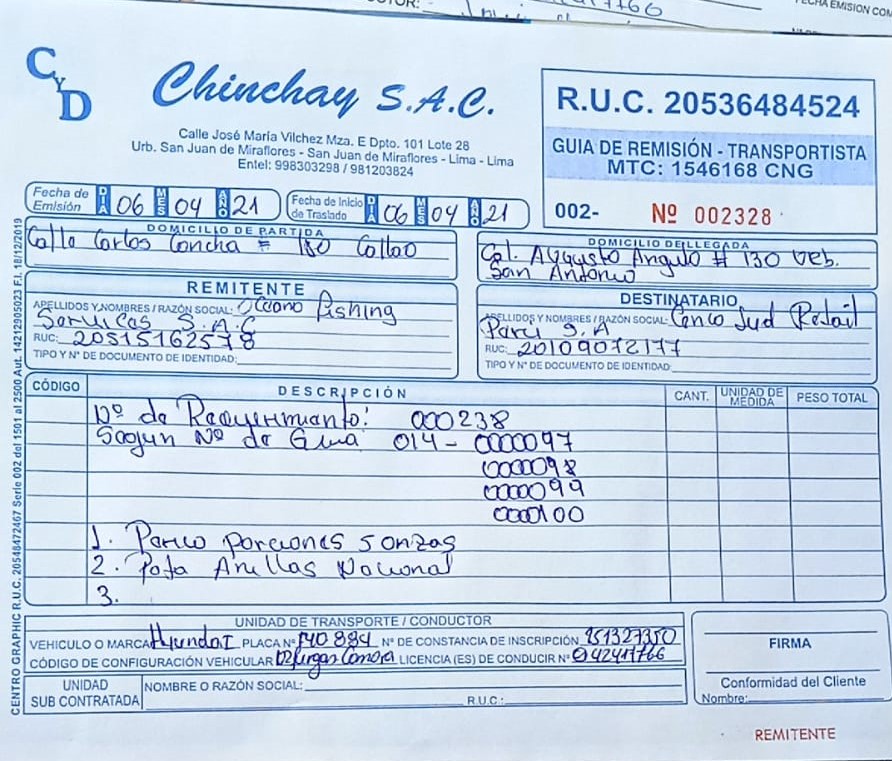 FECHA EMISION CON
C Y D
Chinchay S.A.C.
Calle José María Vilchez Mza. E Dpto. 101 Lote 28
Urb. San Juan de Miraflores - San Juan de Miraflores - Lima - Lima
Entel: 998303298 / 981203824
R.U.C. 20536484524
GUIA DE REMISIÓN - TRANSPORTISTA
MTC: 1546168 CNG
002- Nº 002328
Fecha de Emisión DIA 06 MES 04 AÑO 21
Fecha de Inicio de Traslado DIA 06 MES 04 AÑO 21
DOMICILIO DE PARTIDA
Calle Carlos Concha # 180 Callao
DOMICILIO DE LLEGADA
Cal. Augusto Angulo # 130 Urb.
San Antonio
REMITENTE
APELLIDOS Y NOMBRES / RAZÓN SOCIAL: Oceano Fishing
Services S.A.C
RUC: 20515162578
TIPO Y Nº DE DOCUMENTO DE IDENTIDAD:
DESTINATARIO
APELLIDOS Y NOMBRES / RAZÓN SOCIAL: Cenco Sud Retail
Peru S.A
RUC: 20109072177
TIPO Y Nº DE DOCUMENTO DE IDENTIDAD:
CÓDIGO DESCRIPCIÓN CANT. UNIDAD DE MEDIDA PESO TOTAL
Nº de Requerimiento: 000238
Segun Nº de Guia 014 - 0000097
0000098
0000099
0000100
1. Perico Porciones 5 onzas
2. Pota Anillas Nacional
3.
UNIDAD DE TRANSPORTE / CONDUCTOR
VEHICULO O MARCA Hyundai PLACA Nº 884 Nº DE CONSTANCIA DE INSCRIPCIÓN 151327350
CÓDIGO DE CONFIGURACIÓN VEHICULAR LICENCIA (ES) DE CONDUCIR Nº Q42417766
UNIDAD SUB CONTRATADA
NOMBRE O RAZÓN SOCIAL:
R.U.C.:
FIRMA
Conformidad del Cliente
Nombre:
REMITENTE
CENTRO GRAPHIC R.U.C. 20548472467 Serie 002 del 1501 al 2500 Aut. 14212905023 F.I. 18/12/2019